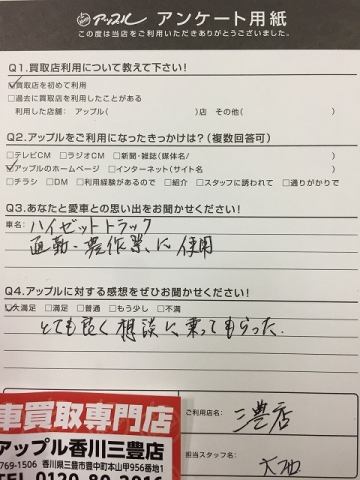 アップル アンケート用紙
この度は当店をご利用いただきありがとうございました。
Q1.買取店利用について教えて下さい!
☑買取店を初めて利用
□過去に買取店を利用したことがある
利用した店舗: アップル( )店 その他( )
Q2.アップルをご利用になったきっかけは?(複数回答可)
□テレビCM □ラジオCM □新聞・雑誌(媒体名/ )
☑アップルのホームページ □インターネット(サイト名 )
□チラシ □DM □利用経験があるので □紹介 □スタッフに誘われて □通りがかりで
Q3.あなたと愛車との思い出をお聞かせください!
車名: ハイゼットトラック
通勤・農作業に使用
Q4.アップルに対する感想をぜひお聞かせください!
☑大満足 □満足 □普通 □もう少し □不満
とても良く相談に乗ってもらった.
ご利用店名: 三豊店
担当スタッフ名:
車買取専門店
アップル香川三豊店
769-1506 香川県三豊市豊中町本山甲956番地1
TEL 0120-80-